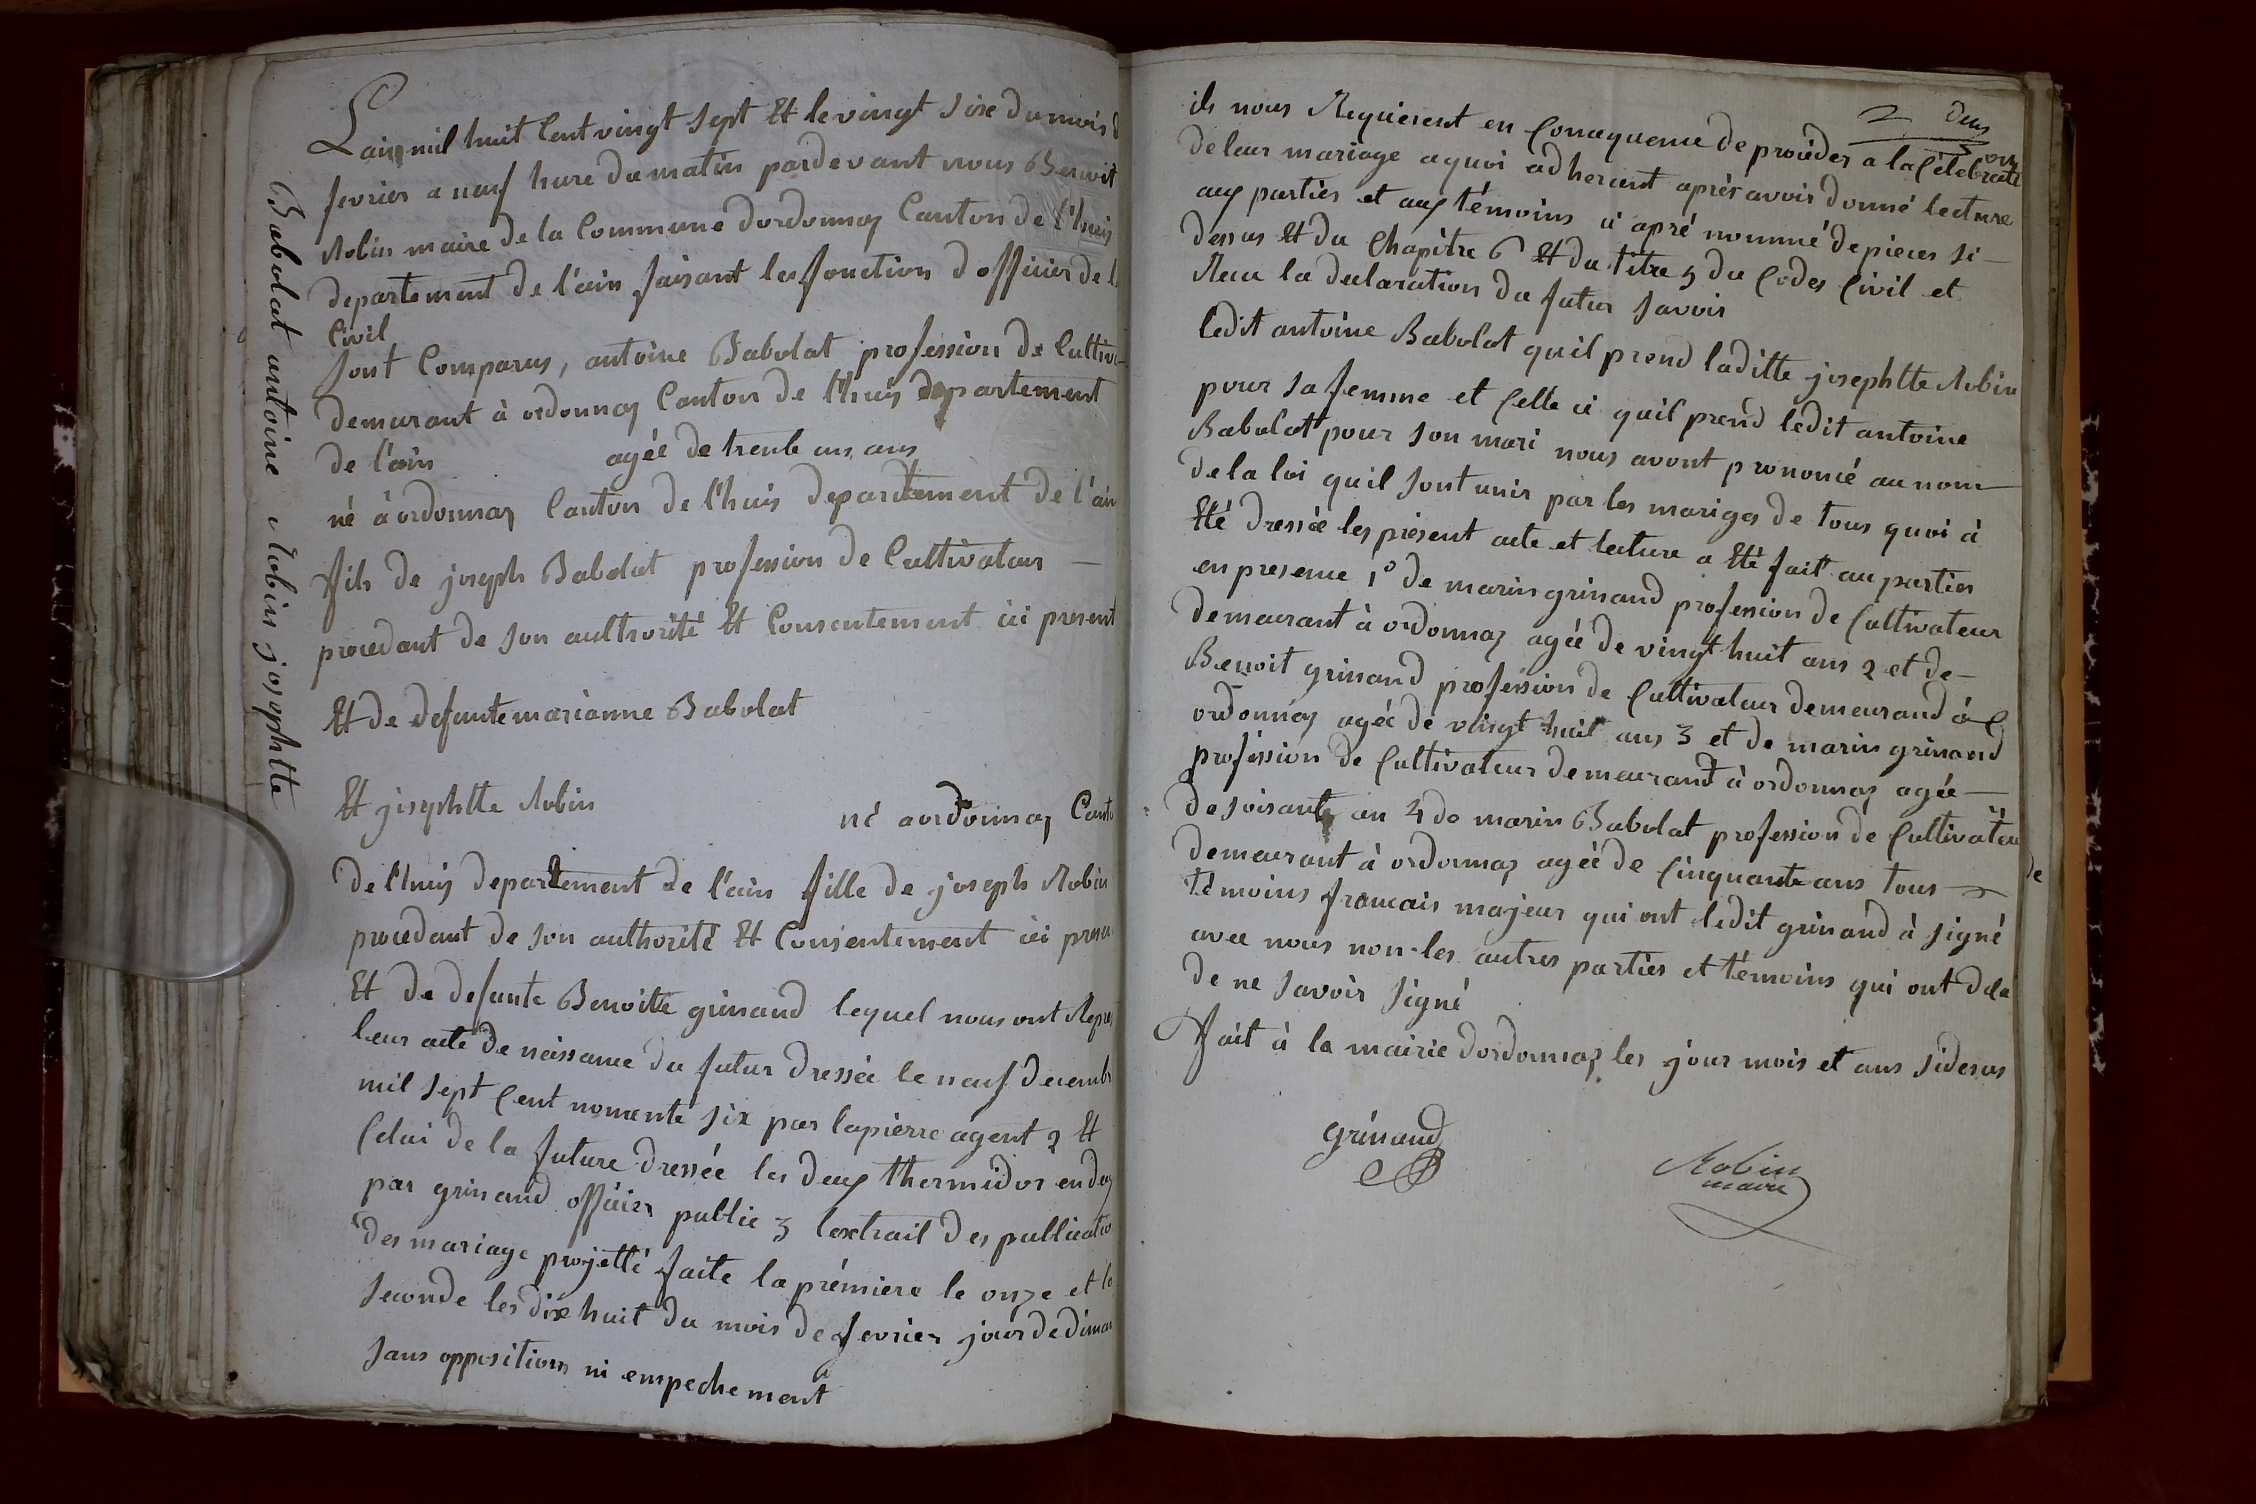 Babolat antoine Robin josephtte
Lain mil huit Cent vingt sept Et le vingt sixe du mois
fevrier a neuf hure du matin pardevant nous Benoit
Robin maire de la Commune dordonnaz Canton de l'huis
departement de l'ain faisant les fonction d officier de l
Civil
sont Comparus, antoine Babolat profession de Cultiv
demurant à ordonnaz Canton de lhuis departement
de l'ain agée de trente ans ans
né à ordonnaz Canton de l'huis departement de l'ain
fils de joseph Babolat profession de Cultivateur
procedant de son aulthorité Et Consentement ici present
Et de defunte marianne Babolat
Et josephtte Robin né a ordonnaz Cant
de lhuis departement de l'ain fille de joseph Robin
procedant de son authorité Et Consentement ici prese
Et de defunte Benoitte grinand lequel nous ont Repre
leur acte de naissance du futur dressée le neuf decemb
mil sept Cent nonente six par lapierre agent 2 Et
Celui de la future dressée les deux thermidor en dix
par grinand officier public 3 lextrait des publicatio
des mariage projetté faite la prémiere le onze et la
seconde les dixhuit du mois de fevrier jour de diman
sans opposition ni empechement
2 deux
ils nous Requierent en Consequence de procéder a la Célébration
de leur mariage a quoi adherent après avoir donné lecture
aux partiès et aux témoins ci apré nommé de pieces si
dessus Et du Chapitre 6 Et du titre 5 du Codes Civil et
Recu la declaration du futur savoir
ledit antoine Babolat qu'il prend laditte josephtte Robin
pour sa femme et Celle ci quil prend ledit antoine
Babolat pour son mari nous avont prononcé au nom
de la loi quil sont unir par les mariges de tous quoi à
Eté dressée les présent acte et lecture a Eté fait au parties
en presence 1° de marin grinand profession de Cultivateur
demeurant à ordonnaz agée de vingt huit ans 2 et de
Benoit grinand profession de Cultivateur demeurand à
ordonnaz agée de vingt huit ans 3 et de marin grinand
profession de Cultivateur demeurand à ordonnaz agée
de soisante an 4 de marin Babolat profession de Cultivateur
demeurant à ordonnaz agée de Cinquante ans tous
témoins francais majeur qui ont ledit grinand à signé
avec nous non les autres partiès et témoins qui ont dcle de
de ne savoir signé
Fait à la mairie dordonnaz les jour mois et ans sidesus
grinand
Robin
maire